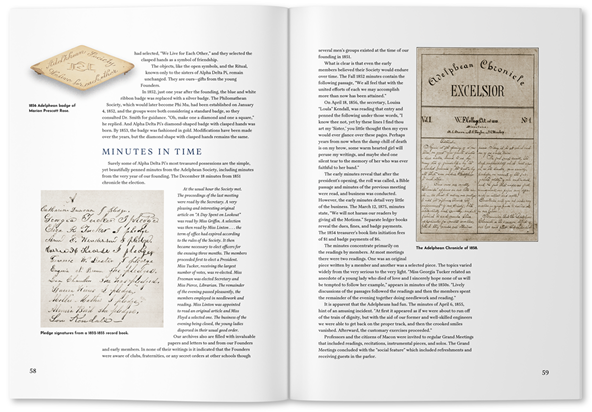 had selected, "We Live for Each Other," and they selected the
clasped hands as a symbol of friendship.
The objects, like the open symbols, and the Ritual,
known only to the sisters of Alpha Delta Pi, remain
unchanged. They are ours–gifts from the young
Founders.
In 1852, just one year after the founding, the blue and white
ribbon badge was replaced with a silver badge. The Philomathean
Society, which would later become Phi Mu, had been established on January
4, 1852, and the groups were both considering a standard badge, so they
consulted Dr. Smith for guidance. "Oh, make one a diamond and one a square,"
he replied. And Alpha Delta Pi's diamond-shaped badge with clasped hands was
born. By 1853, the badge was fashioned in gold. Modifications have been made
over the years, but the diamond shape with clasped hands remains the same.
1856 Adelphean badge of
Marian Prescott Ross
MINUTES IN TIME
Surely some of Alpha Delta Pi's most treasured possessions are the simple,
yet beautifully penned minutes from the Adelphean Society, including minutes
from the very year of our founding. The December 18 minutes from 1851
chronicle the election.
At the usual hour the Society met.
The proceedings of the last meeting
were read by the Secretary. A very
pleasing and interesting original
article on "A Day Spent on Lookout"
was read by Miss Griffin. A selection
was then read by Miss Linton . . . the
term of office had expired according
to the rules of the Society. It then
became necessary to elect officers for
the ensuing three months. The members
proceeded first to elect a President.
Miss Tucker, receiving the largest
number of votes, was re-elected. Miss
Freeman was elected Secretary and
Miss Pierce, Librarian. The remainder
of the evening passed pleasantly, the
members employed in needlework and
reading. Miss Linton was appointed
to read an original article and Miss
Floyd a selected one. The business of the
evening being closed, the young ladies
dispersed in their usual good order.
Our archives also are filled with invaluable
papers and letters to and from our Founders
and early members. In none of their writings is it indicated that the Founders
were aware of clubs, fraternities, or any secret orders at other schools though
Pledge signatures from a 1852-1855 record book.
58
several men's groups existed at the time of our
founding in 1851.
What is clear is that even the early
members believed their Society would endure
over time. The Fall 1852 minutes contain the
following passage, "We all feel that with the
united efforts of each we may accomplish
more than now has been attained."
On April 18, 1856, the secretary, Louisa
"Loula" Kendall, was reading that entry and
penned the following under those words, "I
know thee not, yet by these lines I find thou
art my 'Sister,' you little thought then my eyes
would ever glance over these pages. Perhaps
years from now when the damp chill of death
is on my brow, some warm hearted girl will
peruse my writings, and maybe shed one
silent tear to the memory of her who was ever
faithful to her band."
The early minutes reveal that after the
president's opening, the roll was called, a Bible
passage and minutes of the previous meeting
were read, and business was conducted.
However, the early minutes detail very little
of the business. The March 12, 1875, minutes
state, "We will not harass our readers by
giving all the Motions." Separate ledger books
reveal the dues, fines, and badge payments.
The 1854 treasurer's book lists initiation fees
of $1 and badge payments of $6.
The minutes concentrate primarily on
the readings by members. At most meetings
there were two readings. One was an original
piece written by a member and another was a selected piece. The topics varied
widely from the very serious to the very light. "Miss Georgia Tucker related an
anecdote of a young lady who died of love and I sincerely hope none of us will
be tempted to follow her example," appears in minutes of the 1850s. "Lively
discussions of the passages followed the readings and then the members spent
the remainder of the evening together doing needlework and reading."
It is apparent that the Adelpheans had fun. The minutes of April 6, 1855,
hint of an amusing incident. "At first it appeared as if we were about to run off
of the train of dignity, but with the aid of our former and well-skilled engineers
we were able to get back on the proper track, and then the crooked smiles
vanished. Afterward, the customary exercises proceeded."
Professors and the citizens of Macon were invited to regular Grand Meetings
that included readings, recitations, instrumental pieces, and solos. The Grand
Meetings concluded with the "social feature" which included refreshments and
receiving guests in the parlor.
Adelphean Chronicle
EXCELSIOR
The Adelphean Chronicle of 1858
59